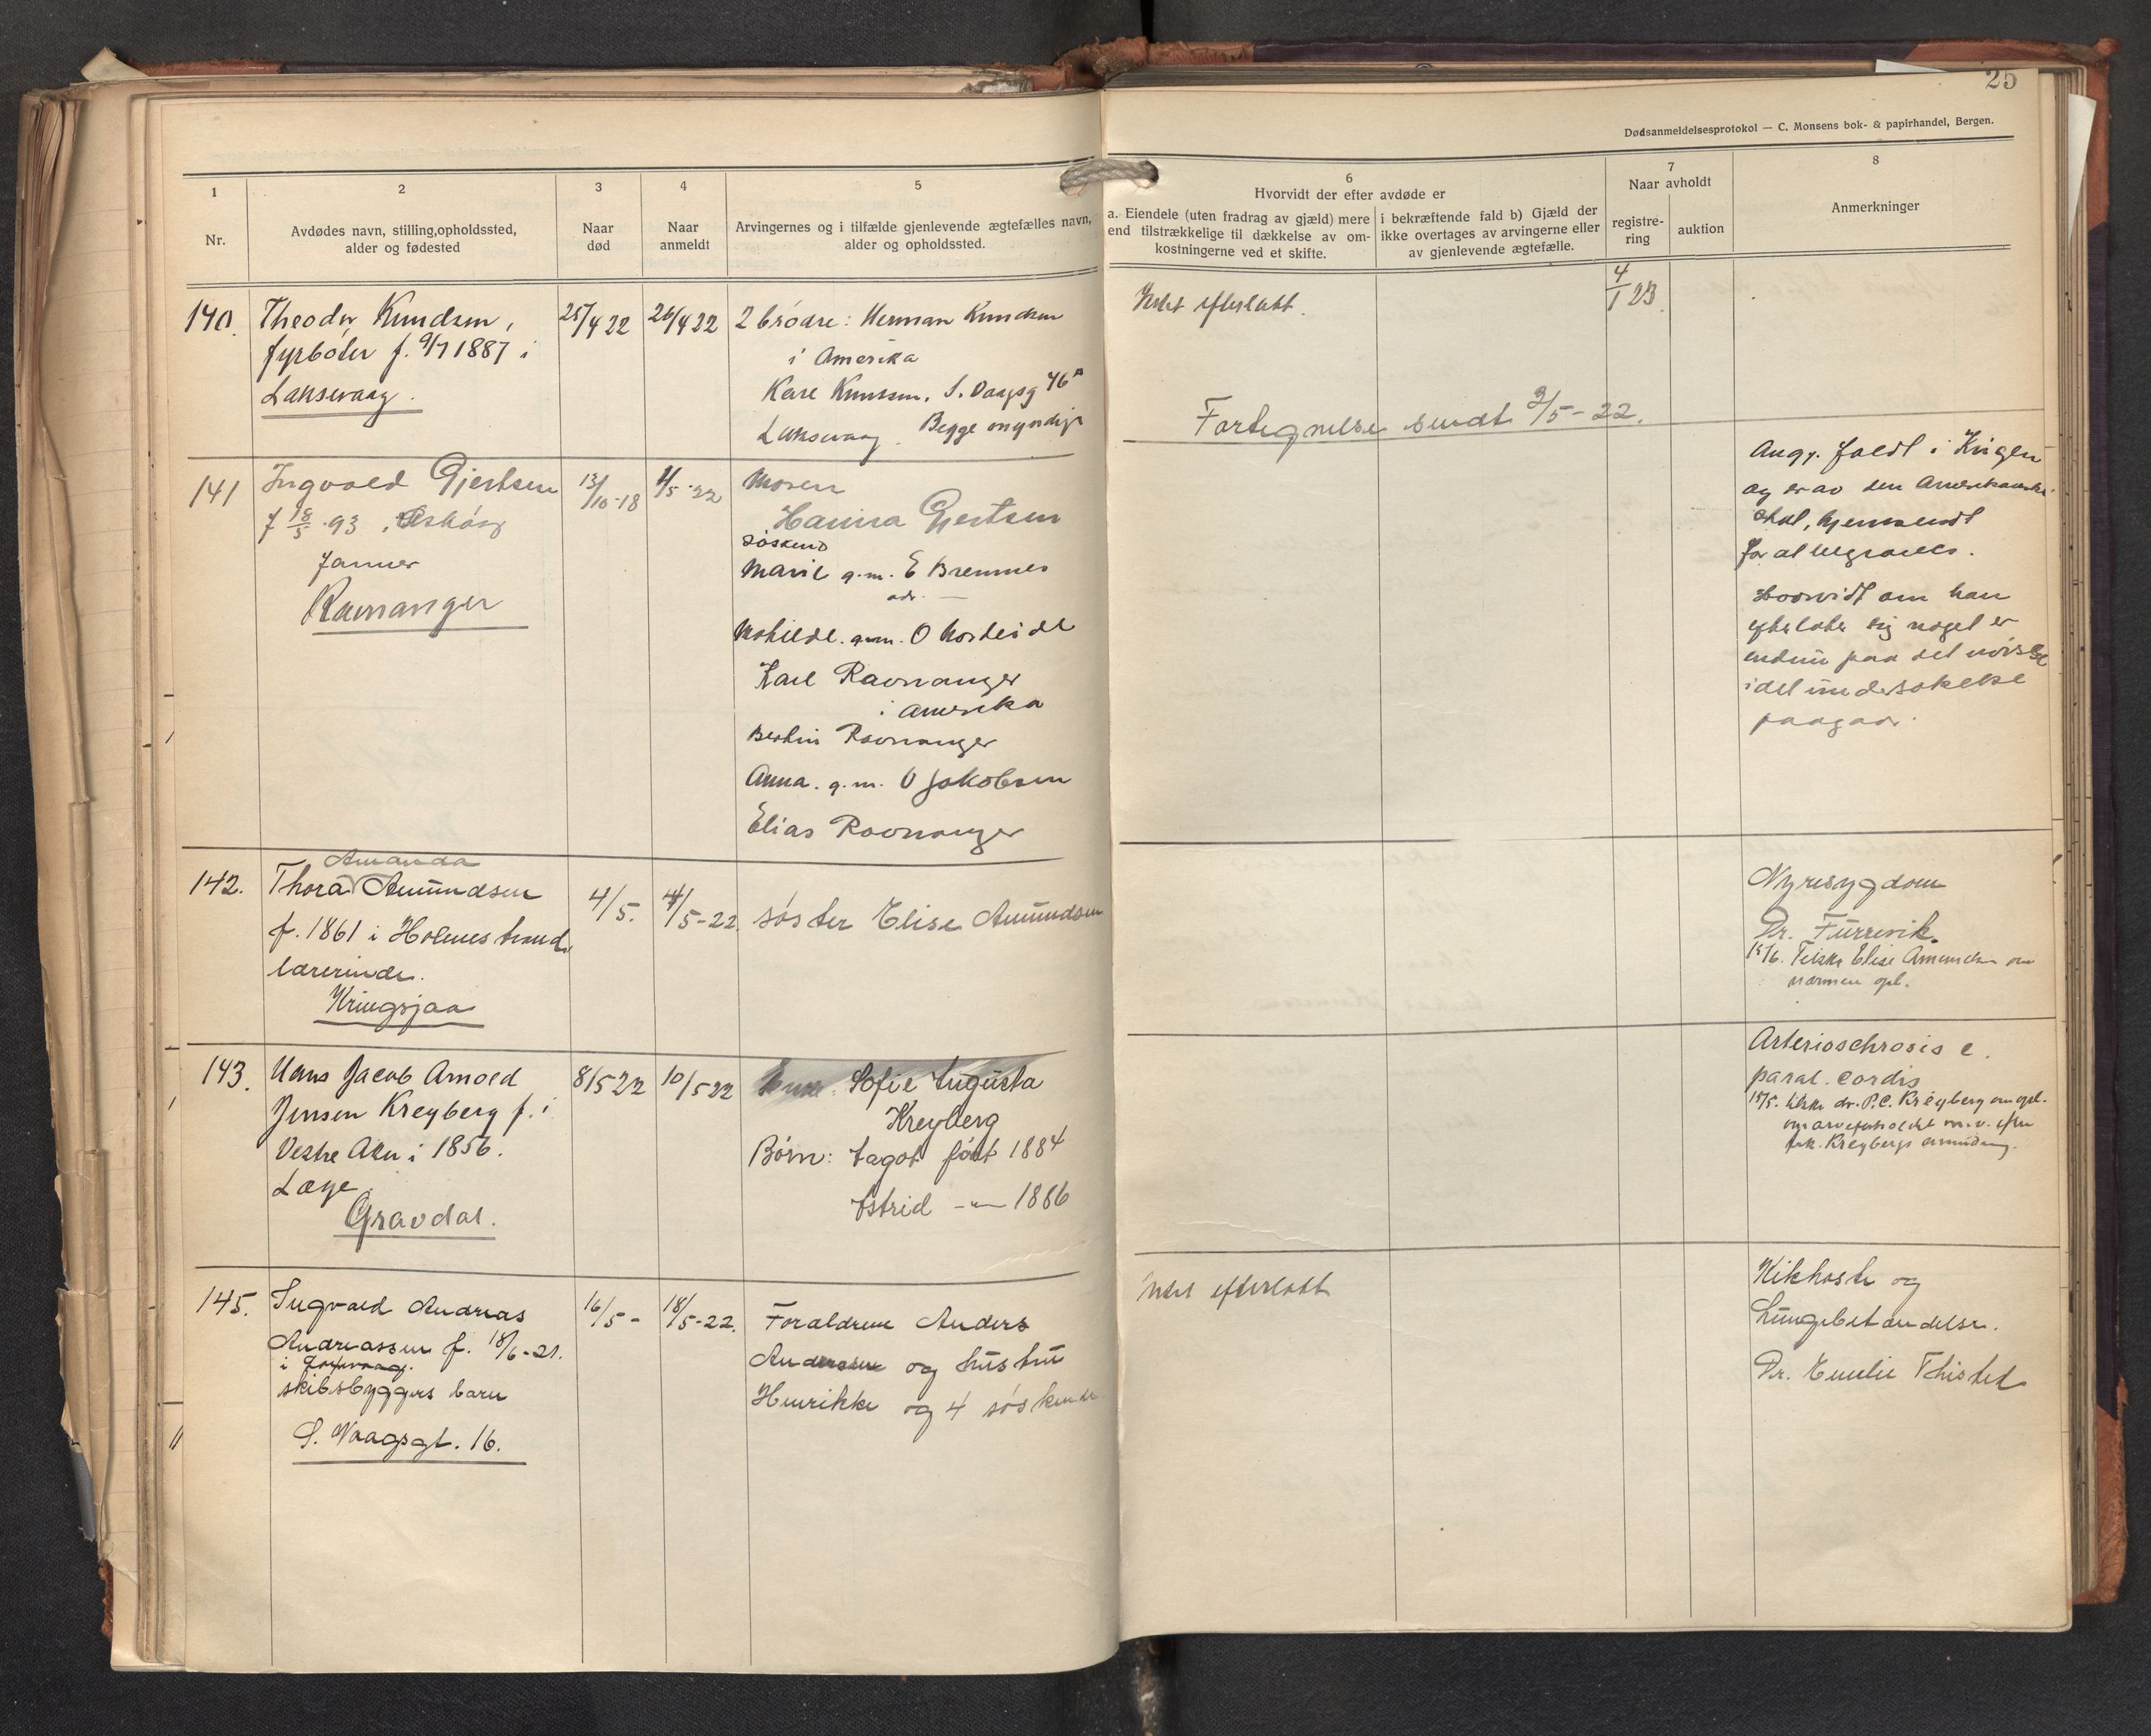 25
Dødsanmeldelsesprotokol — C. Monsens bok- & papirhandel, Bergen.
1
Nr.
2
Avdødes navn, stilling, opholdssted,
alder og fødested
3
Naar
død
4
Naar
anmeldt
5
Arvingernes og i tilfælde gjenlevende ægtefælles navn,
alder og opholdssted.
6
Hvorvidt der efter avdøde er
a. Eiendele (uten fradrag av gjæld) mere
end tilstrækkelige til dækkelse av om-
kostningerne ved et skifte.
i bekræftende fald b) Gjæld der
ikke overtages av arvingerne eller
av gjenlevende ægtefælle.
7
Naar avholdt
registre-
ring
auktion
8
Anmerkninger
140.
Theodor Knudsen,
fyrbøter f. 9/7 1887 i
Laksevaag.
25/4 22
26/4 22
2 brødre: Herman Knudsen
i Amerika
Kare Knutsen, S. Vaagsg 46a
Laksevaag. Begge myndige
Intet efterlatt.
4/1 23
Fortegnelse sendt 2/5-22.
141
Ingvald Gjertsen
f 18/5 -93, Askøy
farmer
Ravnanger
13/10-18
4/5-22
Moren
Hanna Gjertsen
søskend
Marie g.m. E Bremnes
adr. —
Mathilde. g.m. O Nordeide
Karl Ravnanger
i Amerika
Bertin Ravnanger
Anna. g.m. O Jakobsen
Elias Ravnanger
Ang. faldt i Krigen
og er av den Amerikanske
Stat, hjemsendt
for at begraves.
Hvorvidt om han
efterlater sig noget er
endnu paa det uvisse
idet undersøkelse
paagaar.
142.
Amanda
Thora Amundsen
f. 1861 i Holmestrand
lærerinde.
Kringsjaa
4/5.
4/5-22.
søster Elise Amundsen
Nyresygdom
Dr. Furrevik.
15/6. Tilskr Elise Amundsen om
nærmere opl.
143.
Hans Jacob Arnold
Jensen Kreyberg f. i
Vestre Aker i 1856.
Læge.
Gravdal.
8/5 22
10/5 22
Enke: Sofie Augusta
Kreyberg
Børn: Aagot født 1884
Astrid -"- 1886
Arteriosclerosis c.
paral. cordis
15/5. tilskr. dr. P.C. Kreyberg om opl.
om arveforholdet m.v. efter
frk. Kreybergs anmodning.
145.
Ingvald Andreas
Andreassen f. 18/6-21.
i Laksevaag.
skibsbyggers barn
S. Vaagsgt. 16.
16/5-
18/5-22.
Forældrene Anders
Andreassen og hustru
Henrikke og 4 søskende
Intet efterlatt
Kikhoste og
Lungebetændelse.
Dr. Emilie Thistel